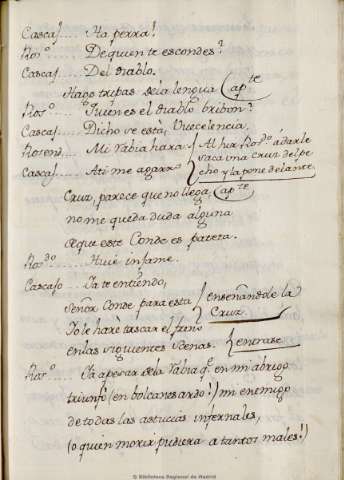 Cascaj.... Ha perra!
Ros.º .... De quien te escondes?
Cascaj.... Del diablo.
Hago tripas de la lengua (ap.te
Ros.º .... Quien es el diablo bribon?
Cascaj.... Dicho se está, Vuecelencia.
Rosend.... Mi rabia hara { Al hir Ros.do á darle
Cascaj.... Ati me agarro { saca una cruz del pe-
cho y la pone delante.
Cruz, parece que no llega, (ap.te
no me queda duda alguna
a que este Conde es pateta.
Ros.do .... Huie infame.
Cascajo .... Ya te entiendo,
Señor Conde para esta { enseñandole la
Yo le harè tascar el freno Cruz.
en las siguientes Scenas. { entrase
Ros.º .... Ya apesar de la rabia q.e en mi abrigo
triunfó (en bolcanes ardo!) mi enemigo
de todas las astucias infernales,
(o quien morir pudiera a tantos males!)
© Biblioteca Regional de Madrid